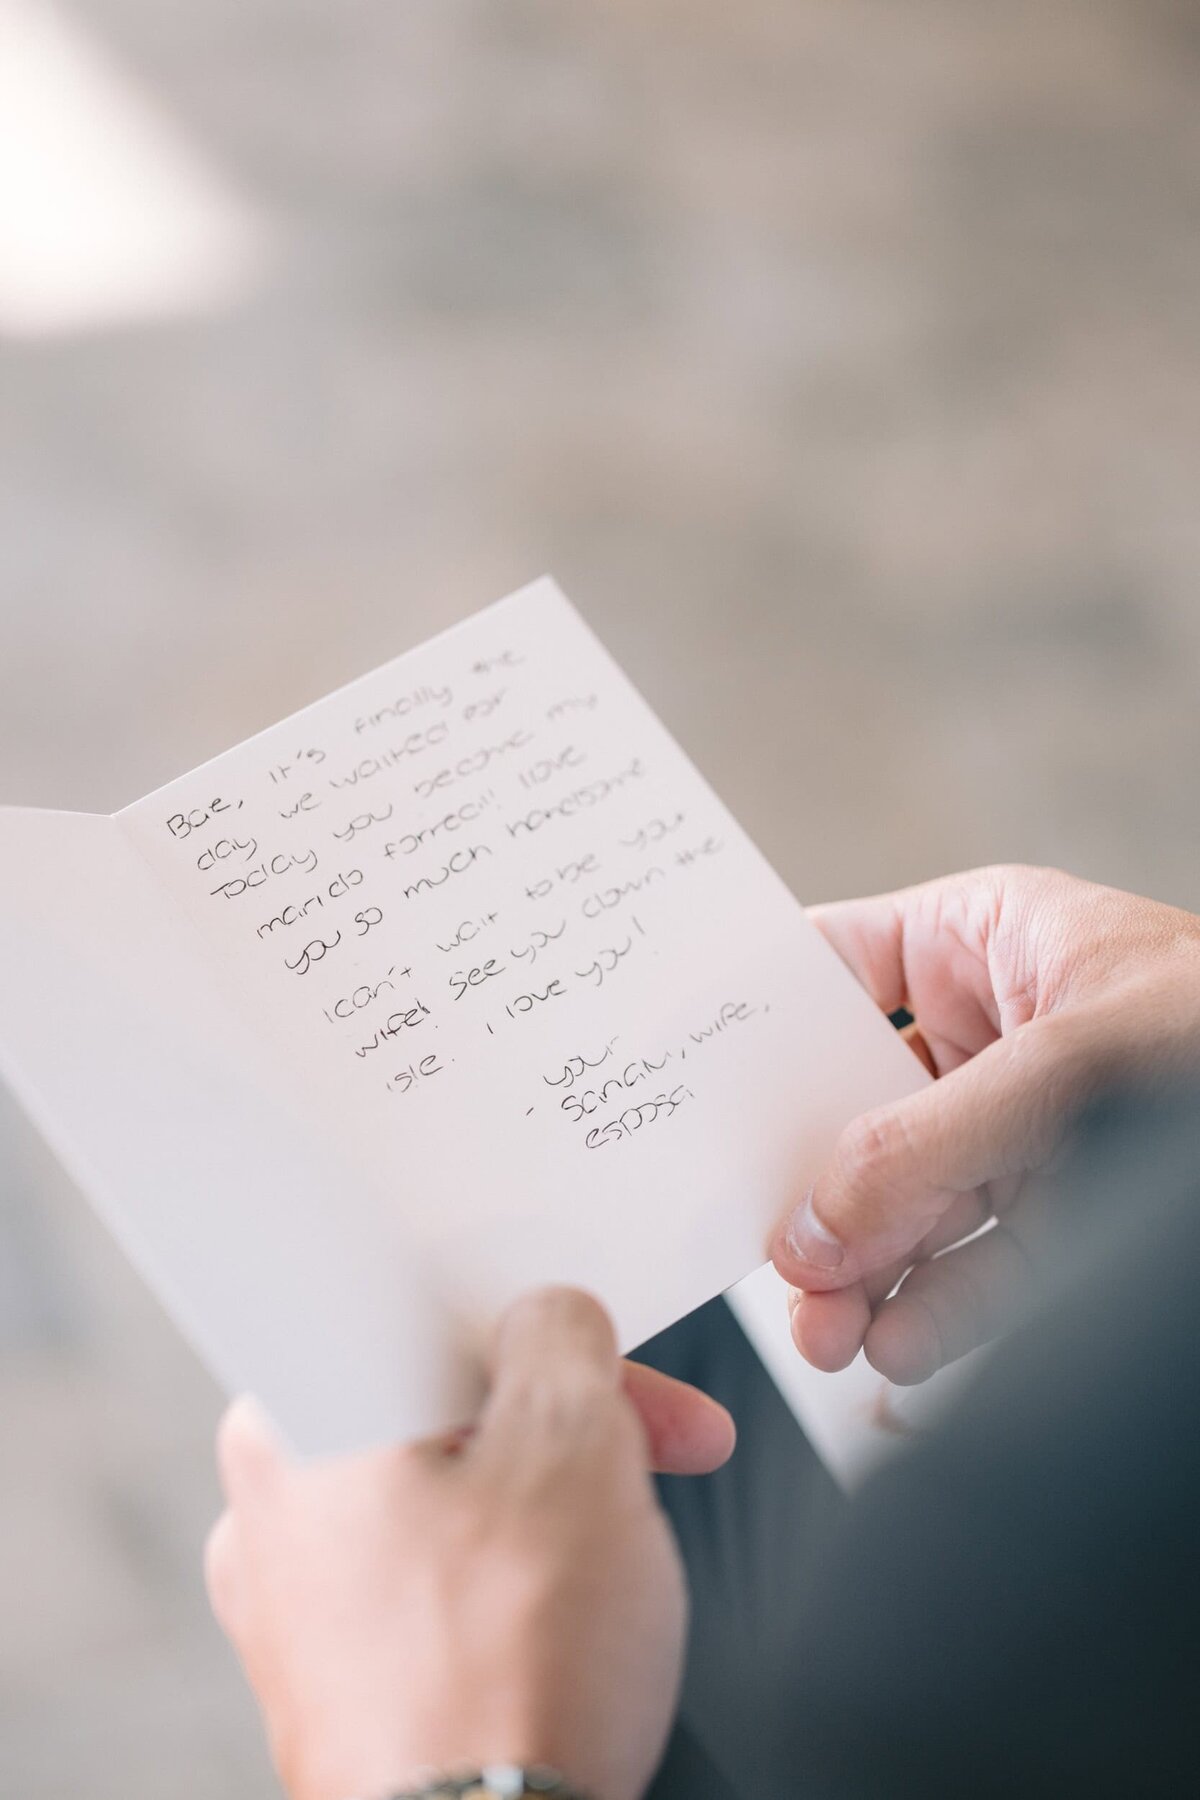 Bae, it's finally the
day we waited for
Today you become my
marido forreal! I love
you so much handsome
I can't wait to be your
wife! See you down the
isle. I love you!
- your
wife,
esposa